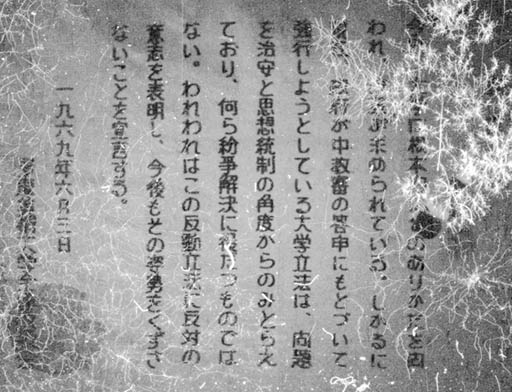 のありかたを問
われ、められている。しかるに
が中教審の答申にもとづいて
強行しようとしている大学立法は、問題
を治安と思想統制の角度からのみとらえ
ており、何ら紛争解決に役だつものでは
ない。われわれはこの反動立法に反対の
意志を表明し、今後もその姿勢をくずさ
ないことを宣言する。
一九六九年六月三日